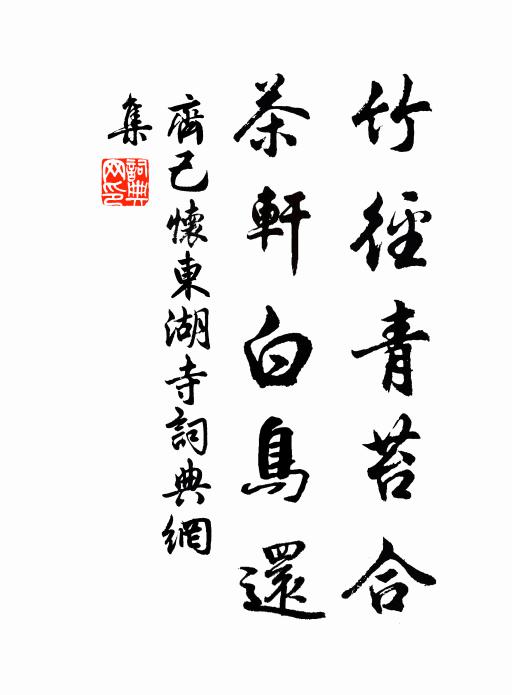 竹徑青苔合
茶軒白鳥還
齊己懷東湖寺詞典網
集
詞典網印